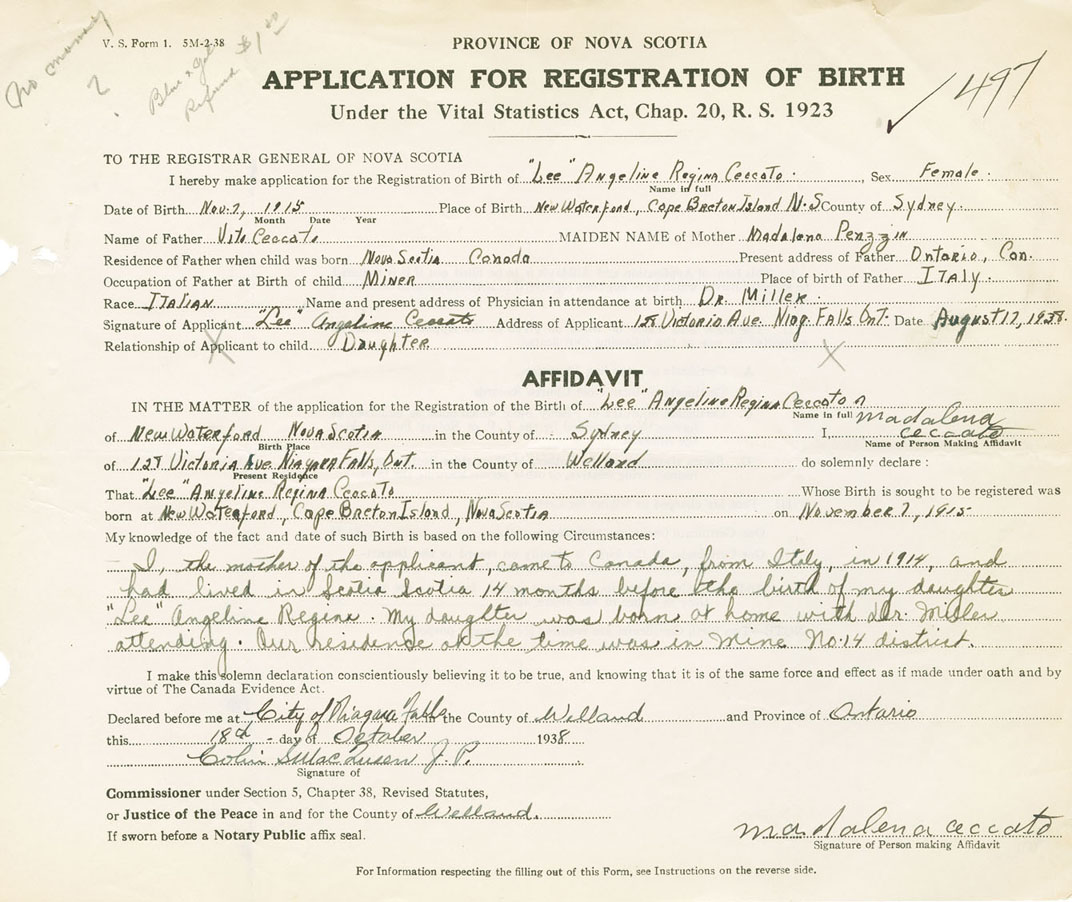 No money
?
Blue & Gold
Refund $1.00
V. S. Form 1. 5M-2-38
PROVINCE OF NOVA SCOTIA
APPLICATION FOR REGISTRATION OF BIRTH
1497
Under the Vital Statistics Act, Chap. 20, R. S. 1923
TO THE REGISTRAR GENERAL OF NOVA SCOTIA
I hereby make application for the Registration of Birth of "Lee" Angeline Regina Ceccato, Sex Female.
Name in full
Date of Birth Nov. 7, 1915 Place of Birth New Waterford, Cape Breton Island N.S County of Sydney.
Month Date Year
Name of Father Vito Ceccato MAIDEN NAME of Mother Madalena Penzzin
Residence of Father when child was born Nova Scotia Canada Present address of Father Ontario, Can.
Occupation of Father at Birth of child Miner Place of birth of Father ITALY.
Race ITALIAN Name and present address of Physician in attendance at birth Dr. Miller.
Signature of Applicant "Lee" Angeline Ceccato Address of Applicant Victoria Ave. Niag. Falls Ont. Date August 17, 1938.
Relationship of Applicant to child Daughter
AFFIDAVIT
IN THE MATTER of the application for the Registration of the Birth of "Lee" Angeline Regina Ceccato
Name in full Madalena
of New Waterford Nova Scotia in the County of Sydney I, ceccato
Birth Place Name of Person Making Affidavit
of Victoria Ave. Niagara Falls, Ont. in the County of Welland do solemnly declare :
Present Residence
That "Lee" Angeline Regina Ceccato Whose Birth is sought to be registered was
born at New Waterford, Cape Breton Island, Nova Scotia on November 7, 1915
My knowledge of the fact and date of such Birth is based on the following Circumstances:
I, the mother of the applicant, came to Canada, from Italy, in 1914, and
had lived in Scotia Scotia 14 months before the birth of my daughter
"Lee" Angeline Regina. My daughter was born at home with Dr. Miller
attending. Our residence at the time was in Mine No. 14 district.
I make this solemn declaration conscientiously believing it to be true, and knowing that it is of the same force and effect as if made under oath and by
virtue of The Canada Evidence Act.
Declared before me at City of Niagara Falls in the County of Welland and Province of Ontario
this 18th day of October 1938
Colin J. P.
Signature of
Commissioner under Section 5, Chapter 38, Revised Statutes,
or Justice of the Peace in and for the County of Welland.
If sworn before a Notary Public affix seal.
madalena ceccato
Signature of Person making Affidavit
For Information respecting the filling out of this Form, see Instructions on the reverse side.